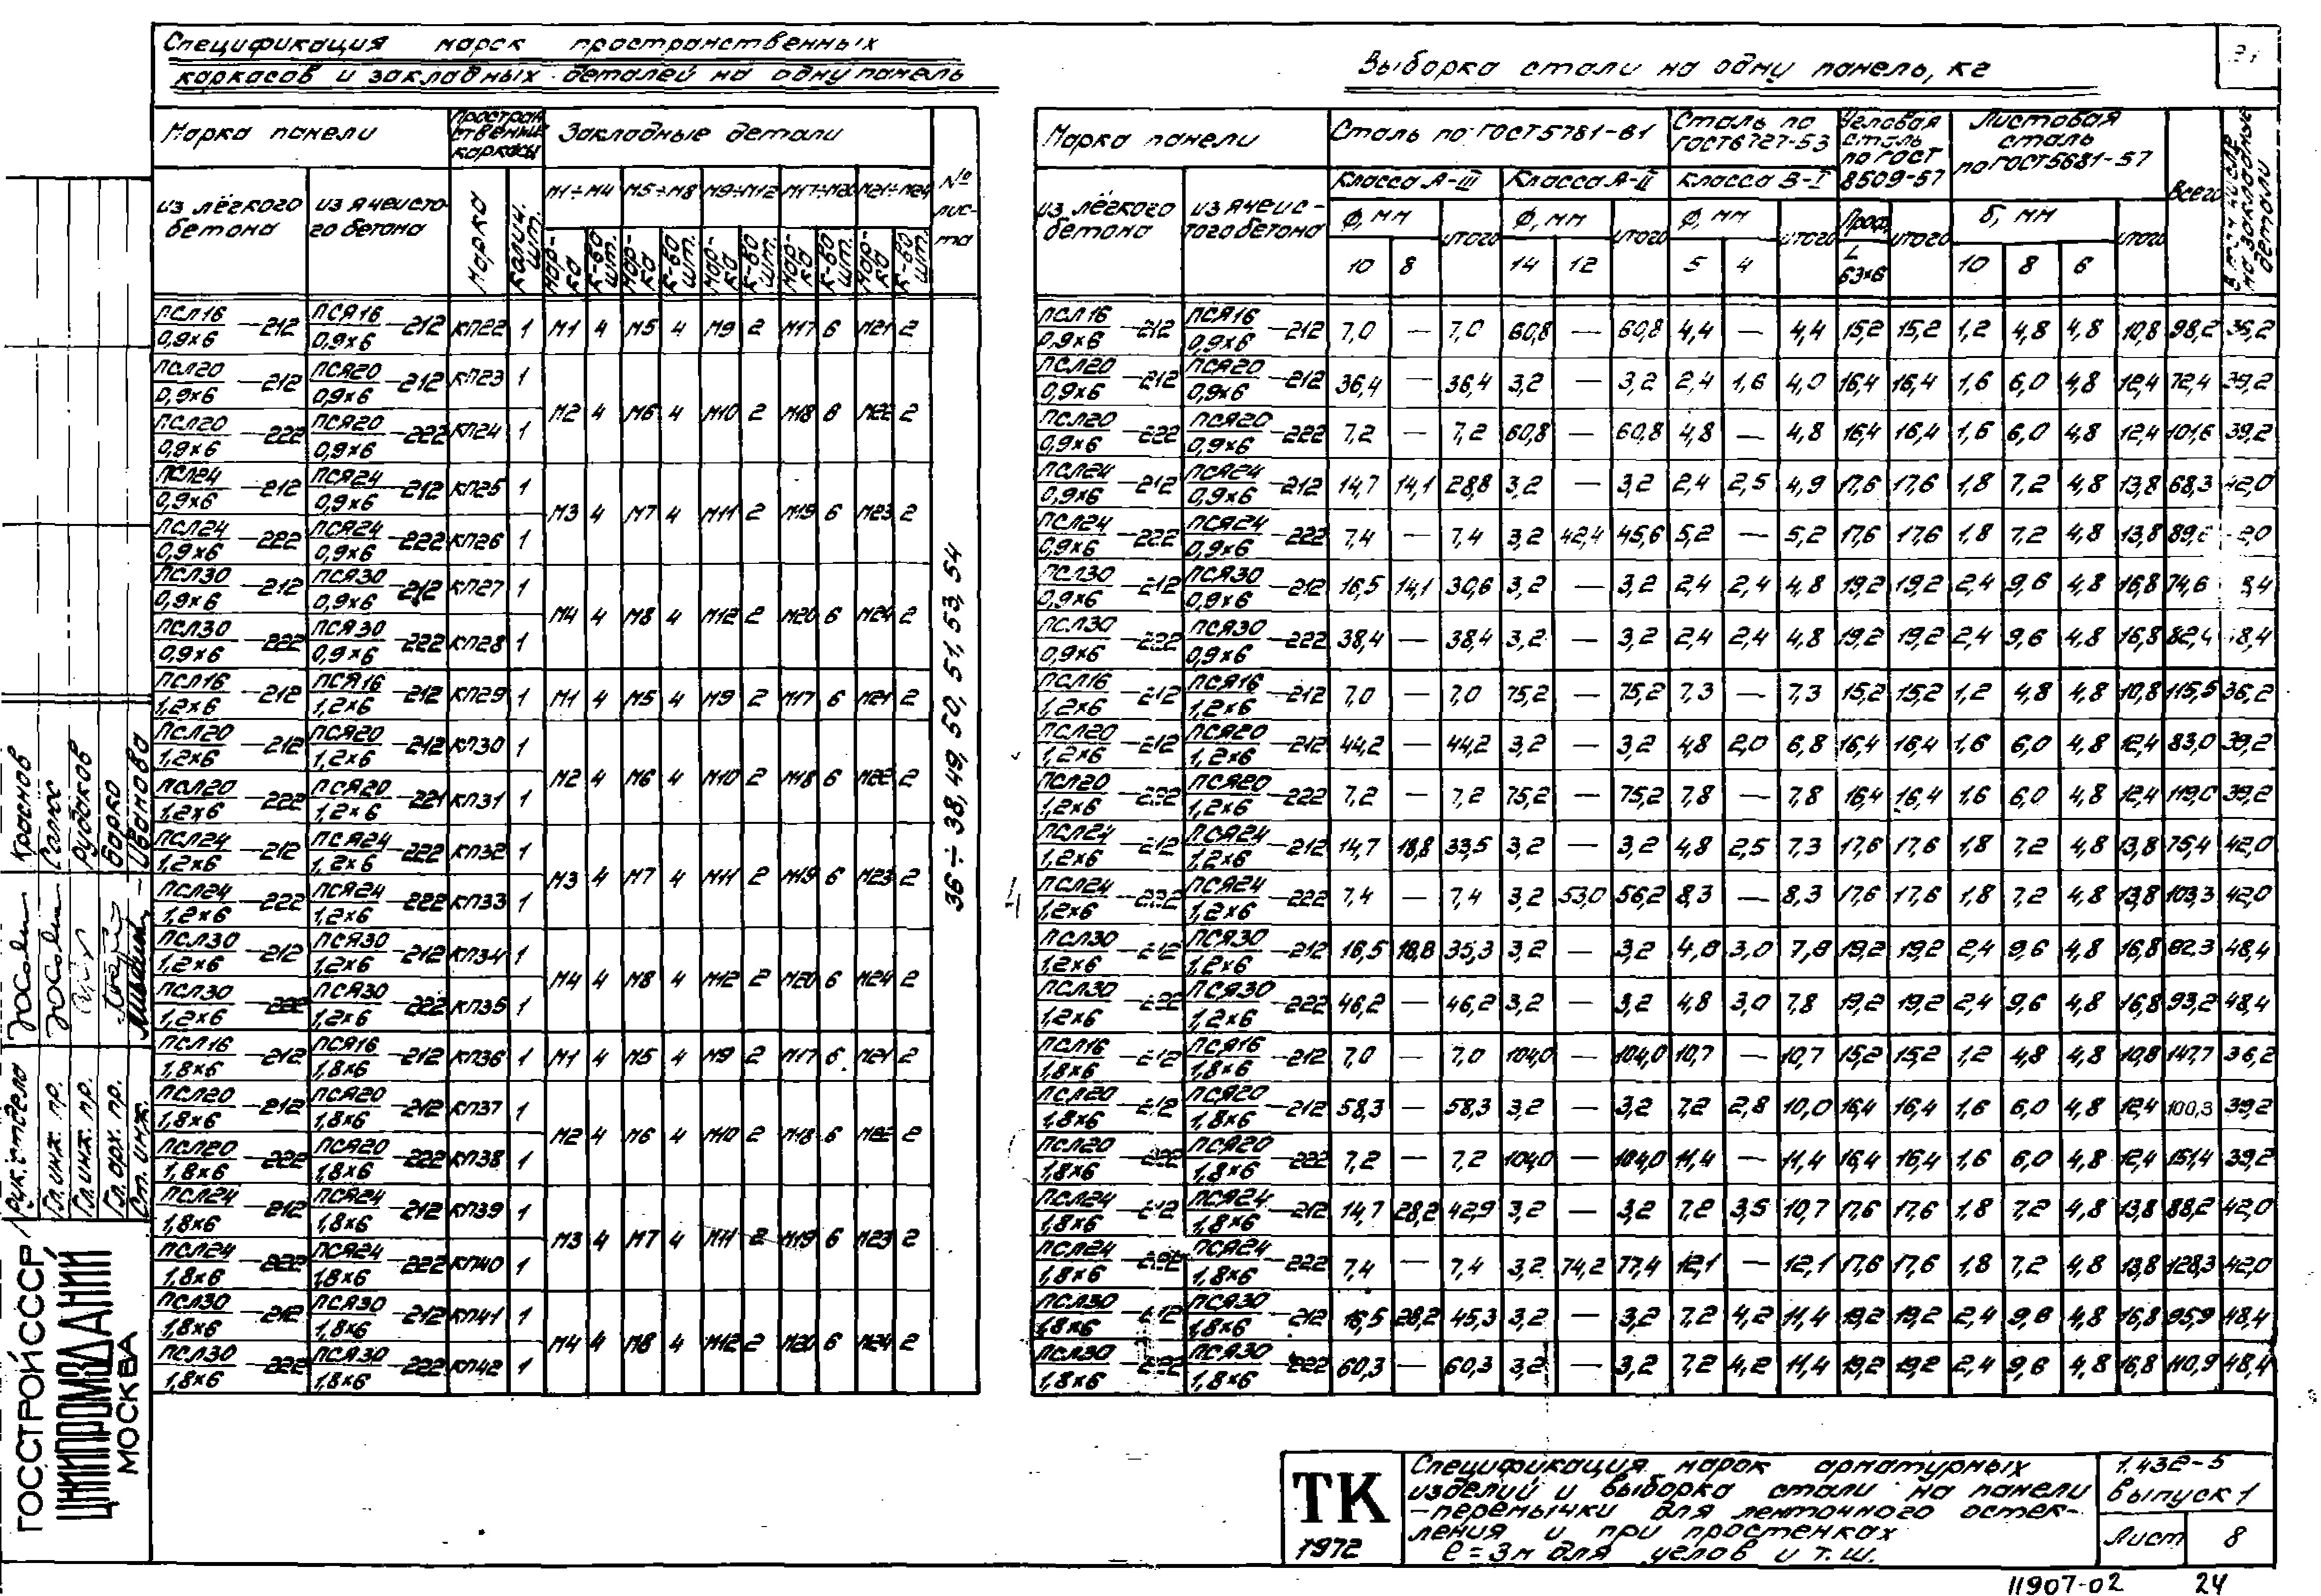 Спецификация марок пространственных
каркасов и закладных деталей на одну панель
Марка панели | Пространственные каркасы | Закладные детали | № листа
из лёгкого бетона | из ячеистого бетона | Марка | Колич. шт. | М1÷М4 | М5÷М8 | М9÷М12 | М17÷М20 | М21÷М24
Марка | к-во шт. | Марка | к-во шт. | Марка | к-во шт. | Марка | к-во шт. | Марка | к-во шт.
ПСЛ16/0,9×6 –212 | ПСЯ16/0,9×6 –212 | КП22 | 1 | М1 | 4 | М5 | 4 | М9 | 2 | М17 | 6 | М21 | 2
ПСЛ20/0,9×6 –212 | ПСЯ20/0,9×6 –212 | КП23 | 1
М2 | 4 | М6 | 4 | М10 | 2 | М18 | 6 | М22 | 2
ПСЛ20/0,9×6 –222 | ПСЯ20/0,9×6 –222 | КП24 | 1
ПСЛ24/0,9×6 –212 | ПСЯ24/0,9×6 –212 | КП25 | 1
М3 | 4 | М7 | 4 | М11 | 2 | М19 | 6 | М23 | 2
ПСЛ24/0,9×6 –222 | ПСЯ24/0,9×6 –222 | КП26 | 1
ПСЛ30/0,9×6 –212 | ПСЯ30/0,9×6 –212 | КП27 | 1
М4 | 4 | М8 | 4 | М12 | 2 | М20 | 6 | М24 | 2
ПСЛ30/0,9×6 –222 | ПСЯ30/0,9×6 –222 | КП28 | 1
ПСЛ16/1,2×6 –212 | ПСЯ16/1,2×6 –212 | КП29 | 1 | М1 | 4 | М5 | 4 | М9 | 2 | М17 | 6 | М21 | 2
ПСЛ20/1,2×6 –212 | ПСЯ20/1,2×6 –212 | КП30 | 1
М2 | 4 | М6 | 4 | М10 | 2 | М18 | 6 | М22 | 2
ПСЛ20/1,2×6 –222 | ПСЯ20/1,2×6 –221 | КП31 | 1
ПСЛ24/1,2×6 –212 | ПСЯ24/1,2×6 –222 | КП32 | 1
М3 | 4 | М7 | 4 | М11 | 2 | М19 | 6 | М23 | 2
ПСЛ24/1,2×6 –222 | ПСЯ24/1,2×6 –222 | КП33 | 1
ПСЛ30/1,2×6 –212 | ПСЯ30/1,2×6 –212 | КП34 | 1
М4 | 4 | М8 | 4 | М12 | 2 | М20 | 6 | М24 | 2
ПСЛ30/1,2×6 –222 | ПСЯ30/1,2×6 –222 | КП35 | 1
ПСЛ16/1,8×6 –212 | ПСЯ16/1,8×6 –212 | КП36 | 1 | М1 | 4 | М5 | 4 | М9 | 2 | М17 | 6 | М21 | 2
ПСЛ20/1,8×6 –212 | ПСЯ20/1,8×6 –212 | КП37 | 1
М2 | 4 | М6 | 4 | М10 | 2 | М18 | 6 | М22 | 2
ПСЛ20/1,8×6 –222 | ПСЯ20/1,8×6 –222 | КП38 | 1
ПСЛ24/1,8×6 –212 | ПСЯ24/1,8×6 –212 | КП39 | 1
М3 | 4 | М7 | 4 | М11 | 2 | М19 | 6 | М23 | 2
ПСЛ24/1,8×6 –222 | ПСЯ24/1,8×6 –222 | КП40 | 1
ПСЛ30/1,8×6 –212 | ПСЯ30/1,8×6 –212 | КП41 | 1
М4 | 4 | М8 | 4 | М12 | 2 | М20 | 6 | М24 | 2
ПСЛ30/1,8×6 –222 | ПСЯ30/1,8×6 –222 | КП42 | 1
36÷38, 49, 50, 51, 53, 54
Выборка стали на одну панель, кг
Марка панели | Сталь по ГОСТ 5781-61 | Сталь по ГОСТ 6727-53 | Угловая сталь по ГОСТ 8509-57 | Листовая сталь по ГОСТ 5681-57 | Всего | В том числе на закладные детали
из лёгкого бетона | из ячеистого бетона | Класса А-III | Класса А-II | Класса В-I
ф, мм | итого | ф, мм | итого | ф, мм | итого | Проф. | итого | б, мм | итого
10 | 8 | 14 | 12 | 5 | 4 | L 63×6 | 10 | 8 | 6
ПСЛ16/0,9×6 –212 | ПСЯ16/0,9×6 –212 | 7,0 | — | 7,0 | 60,8 | — | 60,8 | 4,4 | — | 4,4 | 15,2 | 15,2 | 1,2 | 4,8 | 4,8 | 10,8 | 98,2 | 36,2
ПСЛ20/0,9×6 –212 | ПСЯ20/0,9×6 –212 | 36,4 | — | 36,4 | 3,2 | — | 3,2 | 2,4 | 1,6 | 4,0 | 16,4 | 16,4 | 1,6 | 6,0 | 4,8 | 12,4 | 72,4 | 39,2
ПСЛ20/0,9×6 –222 | ПСЯ20/0,9×6 –222 | 7,2 | — | 7,2 | 60,8 | — | 60,8 | 4,8 | — | 4,8 | 16,4 | 16,4 | 1,6 | 6,0 | 4,8 | 12,4 | 101,6 | 39,2
ПСЛ24/0,9×6 –212 | ПСЯ24/0,9×6 –212 | 14,7 | 14,1 | 28,8 | 3,2 | — | 3,2 | 2,4 | 2,5 | 4,9 | 17,6 | 17,6 | 1,8 | 7,2 | 4,8 | 13,8 | 68,3 | 42,0
ПСЛ24/0,9×6 –222 | ПСЯ24/0,9×6 –222 | 7,4 | — | 7,4 | 3,2 | 42,4 | 45,6 | 5,2 | — | 5,2 | 17,6 | 17,6 | 1,8 | 7,2 | 4,8 | 13,8
ПСЛ30/0,9×6 –212 | ПСЯ30/0,9×6 –212 | 16,5 | 14,1 | 30,6 | 3,2 | — | 3,2 | 2,4 | 2,4 | 4,8 | 19,2 | 19,2 | 2,4 | 9,6 | 4,8 | 16,8 | 74,6
ПСЛ30/0,9×6 –222 | ПСЯ30/0,9×6 –222 | 38,4 | — | 38,4 | 3,2 | — | 3,2 | 2,4 | 2,4 | 4,8 | 19,2 | 19,2 | 2,4 | 9,6 | 4,8 | 16,8 | 82,4 | 48,4
ПСЛ16/1,2×6 –212 | ПСЯ16/1,2×6 –212 | 7,0 | — | 7,0 | 75,2 | — | 75,2 | 7,3 | — | 7,3 | 15,2 | 15,2 | 1,2 | 4,8 | 4,8 | 10,8 | 115,5 | 36,2
ПСЛ20/1,2×6 –212 | ПСЯ20/1,2×6 –212 | 44,2 | — | 44,2 | 3,2 | — | 3,2 | 4,8 | 2,0 | 6,8 | 16,4 | 16,4 | 1,6 | 6,0 | 4,8 | 12,4 | 83,0 | 39,2
ПСЛ20/1,2×6 –222 | ПСЯ20/1,2×6 –222 | 7,2 | — | 7,2 | 75,2 | — | 75,2 | 7,8 | — | 7,8 | 16,4 | 16,4 | 1,6 | 6,0 | 4,8 | 12,4 | 119,0 | 39,2
ПСЛ24/1,2×6 –212 | ПСЯ24/1,2×6 –212 | 14,7 | 18,8 | 33,5 | 3,2 | — | 3,2 | 4,8 | 2,5 | 7,3 | 17,6 | 17,6 | 1,8 | 7,2 | 4,8 | 13,8 | 75,4 | 42,0
ПСЛ24/1,2×6 –222 | ПСЯ24/1,2×6 –222 | 7,4 | — | 7,4 | 3,2 | 53,0 | 56,2 | 8,3 | — | 8,3 | 17,6 | 17,6 | 1,8 | 7,2 | 4,8 | 13,8 | 103,3 | 42,0
ПСЛ30/1,2×6 –212 | ПСЯ30/1,2×6 –212 | 16,5 | 18,8 | 35,3 | 3,2 | — | 3,2 | 4,8 | 3,0 | 7,8 | 19,2 | 19,2 | 2,4 | 9,6 | 4,8 | 16,8 | 82,3 | 48,4
ПСЛ30/1,2×6 –222 | ПСЯ30/1,2×6 –222 | 46,2 | — | 46,2 | 3,2 | — | 3,2 | 4,8 | 3,0 | 7,8 | 19,2 | 19,2 | 2,4 | 9,6 | 4,8 | 16,8 | 93,2 | 48,4
ПСЛ16/1,8×6 –212 | ПСЯ16/1,8×6 –212 | 7,0 | — | 7,0 | 104,0 | — | 104,0 | 10,7 | — | 10,7 | 15,2 | 15,2 | 1,2 | 4,8 | 4,8 | 10,8 | 147,7 | 36,2
ПСЛ20/1,8×6 –212 | ПСЯ20/1,8×6 –212 | 58,3 | — | 58,3 | 3,2 | — | 3,2 | 7,2 | 2,8 | 10,0 | 16,4 | 16,4 | 1,6 | 6,0 | 4,8 | 12,4 | 100,3 | 39,2
ПСЛ20/1,8×6 –222 | ПСЯ20/1,8×6 –222 | 7,2 | — | 7,2 | 104,0 | — | 104,0 | 11,4 | — | 11,4 | 16,4 | 16,4 | 1,6 | 6,0 | 4,8 | 12,4 | 151,4 | 39,2
ПСЛ24/1,8×6 –212 | ПСЯ24/1,8×6 –212 | 14,7 | 28,2 | 42,9 | 3,2 | — | 3,2 | 7,2 | 3,5 | 10,7 | 17,6 | 17,6 | 1,8 | 7,2 | 4,8 | 13,8 | 88,2 | 42,0
ПСЛ24/1,8×6 –222 | ПСЯ24/1,8×6 –222 | 7,4 | — | 7,4 | 3,2 | 74,2 | 77,4 | 12,1 | — | 12,1 | 17,6 | 17,6 | 1,8 | 7,2 | 4,8 | 13,8 | 128,3 | 42,0
ПСЛ30/1,8×6 –212 | ПСЯ30/1,8×6 –212 | 16,5 | 28,2 | 45,3 | 3,2 | — | 3,2 | 7,2 | 4,2 | 11,4 | 19,2 | 19,2 | 2,4 | 9,6 | 4,8 | 16,8 | 95,9 | 48,4
ПСЛ30/1,8×6 –222 | ПСЯ30/1,8×6 –222 | 60,3 | — | 60,3 | 3,2 | — | 3,2 | 7,2 | 4,2 | 11,4 | 19,2 | 19,2 | 2,4 | 9,6 | 4,8 | 16,8 | 110,9 | 48,4
Рук. отдела | Краснов
Гл. инж. пр.
Гл. инж. пр. | Рудаков
Гл. арх. пр. | Барко
Ст. инж. | Иванова
ГОССТРОЙ СССР
ЦНИИПРОМЗДАНИЙ
МОСКВА
ТК
1972
Спецификация марок арматурных
изделий и выборка стали на панели
-перемычки для ленточного остек-
ления и при простенках
l=3м для углов и т.ш.
1.432-5
Выпуск 1
Лист 8
11907-02 24